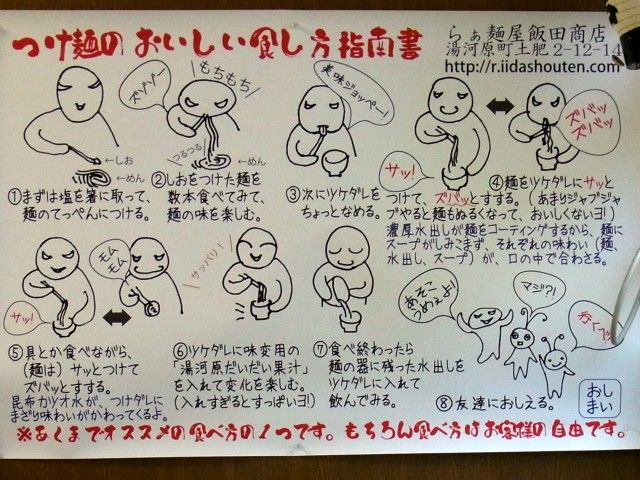 つけ麺の おいしい食し方指南書
らぁ麺屋飯田商店
湯河原町土肥2-12-14
http://r.iidashouten.com
←しお
←めん
①まずは塩を箸に取って、
麺のてっぺんにつける。
ズゾゾゾー
もちもち
つるつる
←めん
②しおをつけた麺を
数本食べてみて、
麺の味を楽しむ。
美味ジョッペー!
③次にツケダレを
ちょっとなめる。
サッ!
ズバッッ
ズバッッ
④麺をツケダレにサッと
つけて、ズバッとすする。(あまりジャブジャ
ブやると麺もぬるくなって、おいしくないヨ!)
濃厚水出しが麺をコーティングするから、麺に
スープがしみこまず、それぞれの味わい(麺、
水出し、スープ)が、口の中で合わさる。
サッ!
モム
モム
⑤具とか食べながら、
(麺は)サッとつけて
ズバッとすする。
昆布カツオ水が、つけダレに
まざり味わいがかわってくるよ。
サッパリ!
⑥ツケダレに味変用の
「湯河原だいだい果汁」
を入れて変化を楽しむ。
(入れすぎるとすっぱいヨ!)
⑦食べ終わったら
麺の器に残った水出しを
ツケダレに入れて
飲んでみる。
あそこ
うめぇよ!
マジ?!
行くべ
⑧友達におしえる。
おし
まい
※あくまでオススメの食べ方の1つです。もちろん食べ方はお客様の自由です。